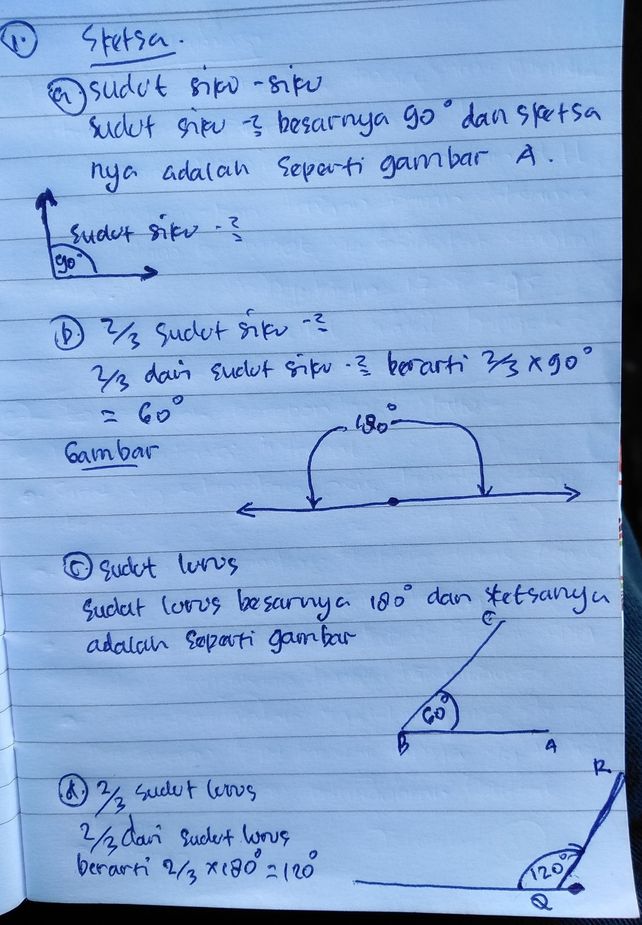 1. Sketsa.
a) sudut siku - siku
sudut siku -2 besarnya 90° dan sketsa
nya adalah seperti gambar A.
sudut siku -2
90°
b. 2/3 sudut siku -2
2/3 dari sudut siku -2 berarti 2/3 x 90°
= 60°
Gambar
180°
c. sudut lurus
sudut lurus besarnya 180° dan sketsanya
adalah seperti gambar
C
60°
B
A
d. 2/3 sudut lurus
2/3 dari sudut lurus
berarti 2/3 x 180° = 120°
R
120°
Q